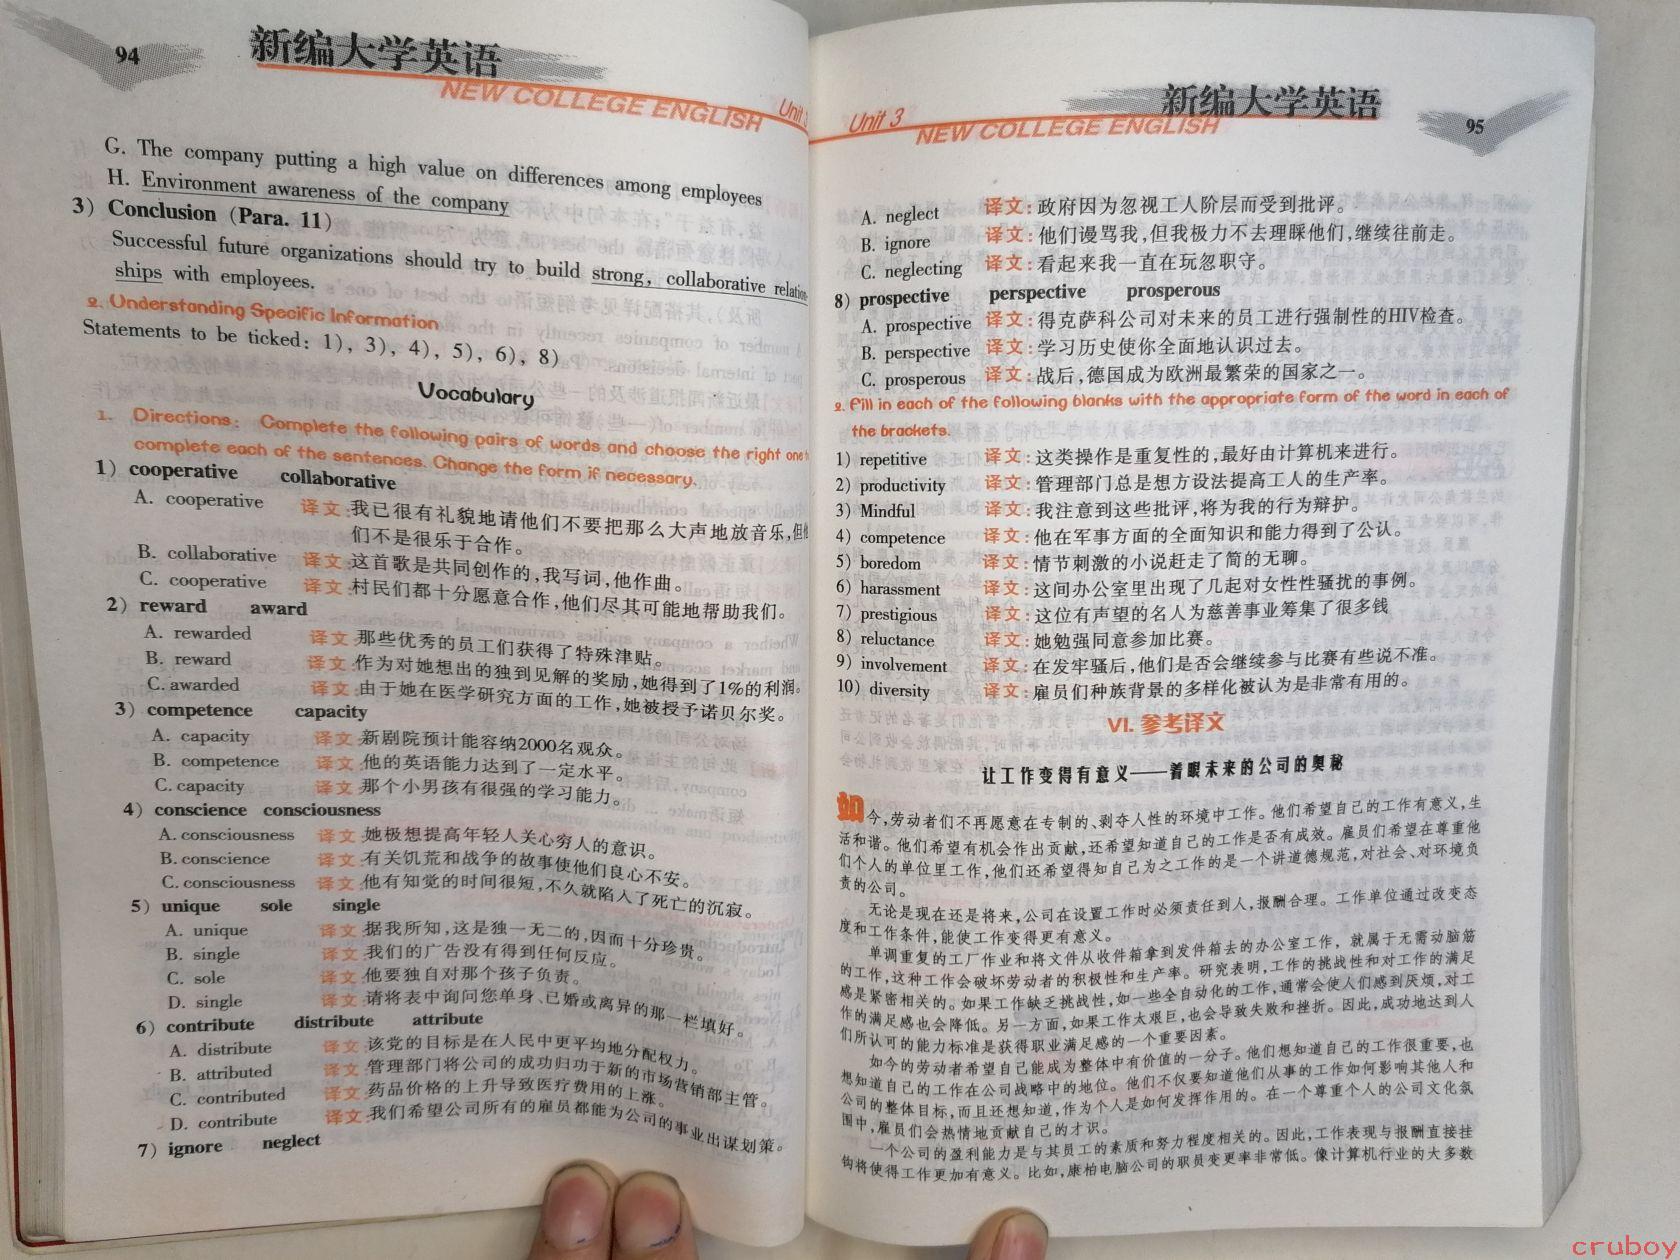 94
新编大学英语
NEW COLLEGE ENGLISH
Unit 3
G. The company putting a high value on differences among employees
H. Environment awareness of the company
3) Conclusion (Para. 11)
Successful future organizations should try to build strong, collaborative relation-
ships with employees.
2. Understanding Specific Information
Statements to be ticked: 1), 3), 4), 5), 6), 8)
Vocabulary
1. Directions: Complete the following pairs of words and choose the right one
complete each of the sentences. Change the form if necessary.
1) cooperative collaborative
A. cooperative 译文:我已很有礼貌地请他们不要把那么大声地放音乐,但他
们不是很乐于合作。
B. collaborative 译文:这首歌是共同创作的,我写词,他作曲。
C. cooperative 译文:村民们都十分愿意合作,他们尽其可能地帮助我们。
2) reward award
A. rewarded 译文:那些优秀的员工们获得了特殊津贴。
B. reward 译文:作为对她想出的独到见解的奖励,她得到了1%的利润。
C. awarded 译文:由于她在医学研究方面的工作,她被授予诺贝尔奖。
3) competence capacity
A. capacity 译文:新剧院预计能容纳2000名观众。
B. competence 译文:他的英语能力达到了一定水平。
C. capacity 译文:那个小男孩有很强的学习能力。
4) conscience consciousness
A. consciousness 译文:她极想提高年轻人关心穷人的意识。
B. conscience 译文:有关饥荒和战争的故事使他们良心不安。
C. consciousness 译文:他有知觉的时间很短,不久就陷入了死亡的沉寂。
5) unique sole single
A. unique 译文:据我所知,这是独一无二的,因而十分珍贵。
B. single 译文:我们的广告没有得到任何反应。
C. sole 译文:他要独自对那个孩子负责。
D. single 译文:请将表中询问您单身、已婚或离异的那一栏填好。
6) contribute distribute attribute
A. distribute 译文:该党的目标是在人民中更平均地分配权力。
B. attributed 译文:管理部门将公司的成功归功于新的市场营销部主管。
C. contributed 译文:药品价格的上升导致医疗费用的上涨。
D. contribute 译文:我们希望公司所有的雇员都能为公司的事业出谋划策。
7) ignore neglect
Unit 3
新编大学英语
NEW COLLEGE ENGLISH
95
A. neglect 译文:政府因为忽视工人阶层而受到批评。
B. ignore 译文:他们谩骂我,但我极力不去理睬他们,继续往前走。
C. neglecting 译文:看起来我一直在玩忽职守。
8) prospective perspective prosperous
A. prospective 译文:得克萨科公司对未来的员工进行强制性的HIV检查。
B. perspective 译文:学习历史使你全面地认识过去。
C. prosperous 译文:战后,德国成为欧洲最繁荣的国家之一。
2. Fill in each of the following blanks with the appropriate form of the word in each of
the brackets.
1) repetitive 译文:这类操作是重复性的,最好由计算机来进行。
2) productivity 译文:管理部门总是想方设法提高工人的生产率。
3) Mindful 译文:我注意到这些批评,将为我的行为辩护。
4) competence 译文:他在军事方面的全面知识和能力得到了公认。
5) boredom 译文:情节刺激的小说赶走了简的无聊。
6) harassment 译文:这间办公室里出现了几起对女性性骚扰的事例。
7) prestigious 译文:这位有声望的名人为慈善事业筹集了很多钱
8) reluctance 译文:她勉强同意参加比赛。
9) involvement 译文:在发牢骚后,他们是否会继续参与比赛有些说不准。
10) diversity 译文:雇员们种族背景的多样化被认为是非常有用的。
VI. 参考译文
让工作变得有意义——着眼未来的公司的奥秘
如今,劳动者们不再愿意在专制的、剥夺人性的环境中工作。他们希望自己的工作有意义,生
活和谐。他们希望有机会作出贡献,还希望知道自己的工作是否有成效。雇员们希望在尊重他
们个人的单位里工作,他们还希望得知自己为之工作的是一个讲道德规范,对社会、对环境负
责的公司。
无论是现在还是将来,公司在设置工作时必须责任到人,报酬合理。工作单位通过改变态
度和工作条件,能使工作变得更有意义。
单调重复的工厂作业和将文件从收件箱拿到发件箱去的办公室工作,就属于无需动脑筋
的工作,这种工作会破坏劳动者的积极性和生产率。研究表明,工作的挑战性和对工作的满足
感是紧密相关的。如果工作缺乏挑战性,如一些全自动化的工作,通常会使人们感到厌烦,对工
作的满足感也会降低。另一方面,如果工作太艰巨,也会导致失败和挫折。因此,成功地达到人
们所认可的能力标准是获得职业满足感的一个重要因素。
如今的劳动者希望自己能成为整体中有价值的一分子。他们想知道自己的工作很重要,也
想知道自己的工作在公司战略中的地位。他们不仅要知道他们从事的工作如何影响其他人和
公司的整体目标,而且还想知道,作为个人是如何发挥作用的。在一个尊重个人的公司文化氛
围中,雇员们会热情地贡献自己的才识。
一个公司的盈利能力是与其员工的素质和努力程度相关的。因此,工作表现与报酬直接挂
钩将使得工作更加有意义。比如,康柏电脑公司的职员变更率非常低。像计算机行业的大多数
cruboy